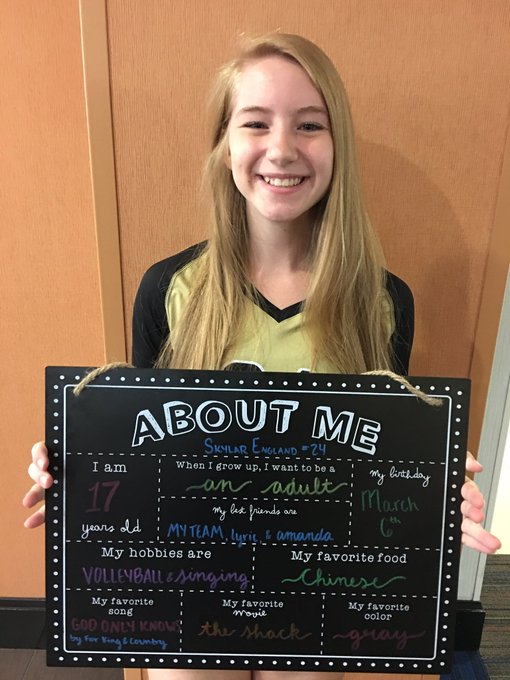 ABOUT ME
SKYLAR ENGLAND #24
I am
17
years old
When I grow up, I want to be a
an adult
My best friends are
MY TEAM, lyric, & amanda
My birthday
March
6th
My hobbies are
VOLLEYBALL & singing
My favorite food
Chinese
My favorite
song
GOD ONLY KNOWS
by For King & Country
My favorite
movie
the shack
My favorite
color
gray